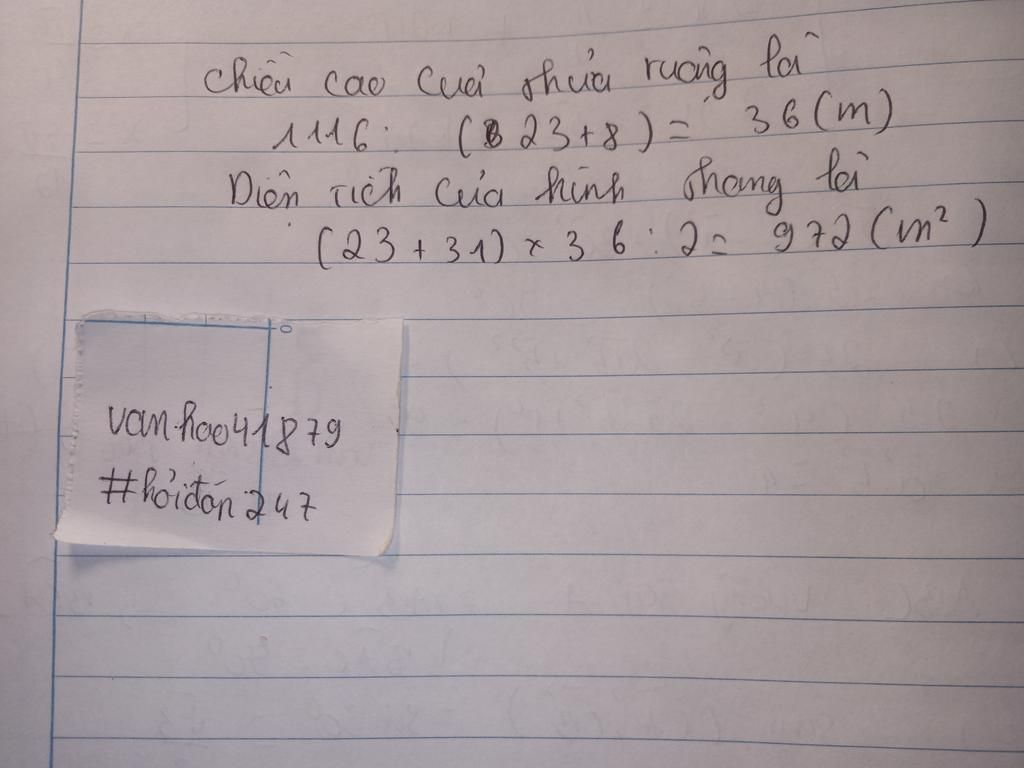 chiều cao cuả thửa ruộng là
1116 : (23+8) = 36 (m)
Diện tích của hình thang là
(23 + 31) × 36 : 2 = 972 (m²)
vanhao41879
#hỏiđáp247